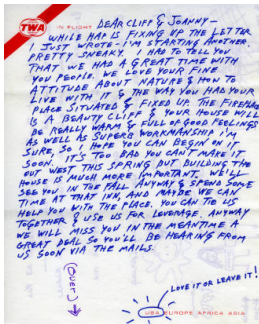 TWA IN FLIGHT
DEAR CLIFF & JOANNY-
WHILE HAP IS FIXING UP THE LETTER
I JUST WROTE - I'M STARTING ANOTHER.
PRETTY SNEAKY. I HAD TO TELL YOU
THAT WE HAD A GREAT TIME WITH
YOU PEOPLE. WE LOVE YOUR FINE
ATTITUDE ABOUT NATURE & HOW TO
LIVE WITH IT & THE WAY YOU HAD YOUR
PLACE SITUATED & FIXED UP. THE FIREPLACE
IS A BEAUTY CLIFF & YOUR HOUSE WILL
BE REALLY WARM & FULL OF GOOD FEELINGS
AS WELL AS SUPERB WORKMANSHIP I'M
SURE, SO I HOPE YOU CAN BEGIN ON IT
SOON. IT'S TOO BAD YOU CAN'T MAKE IT
OUT WEST THIS SPRING BUT BUILDING THE
HOUSE IS MUCH MORE IMPORTANT. WE'LL
SEE YOU IN THE FALL ANYWAY & SPEND SOME
TIME AT THAT INK, AND MAYBE WE CAN
HELP YOU WITH THE PLACE. YOU CAN TIE US
TOGETHER & USE US FOR LEVERAGE. ANYWAY
WE WILL MISS YOU IN THE MEANTIME A
GREAT DEAL SO YOU'LL BE HEARING FROM
US SOON VIA THE MAILS.
(OVER)
LOVE IT OR LEAVE IT!
USA EUROPE AFRICA ASIA